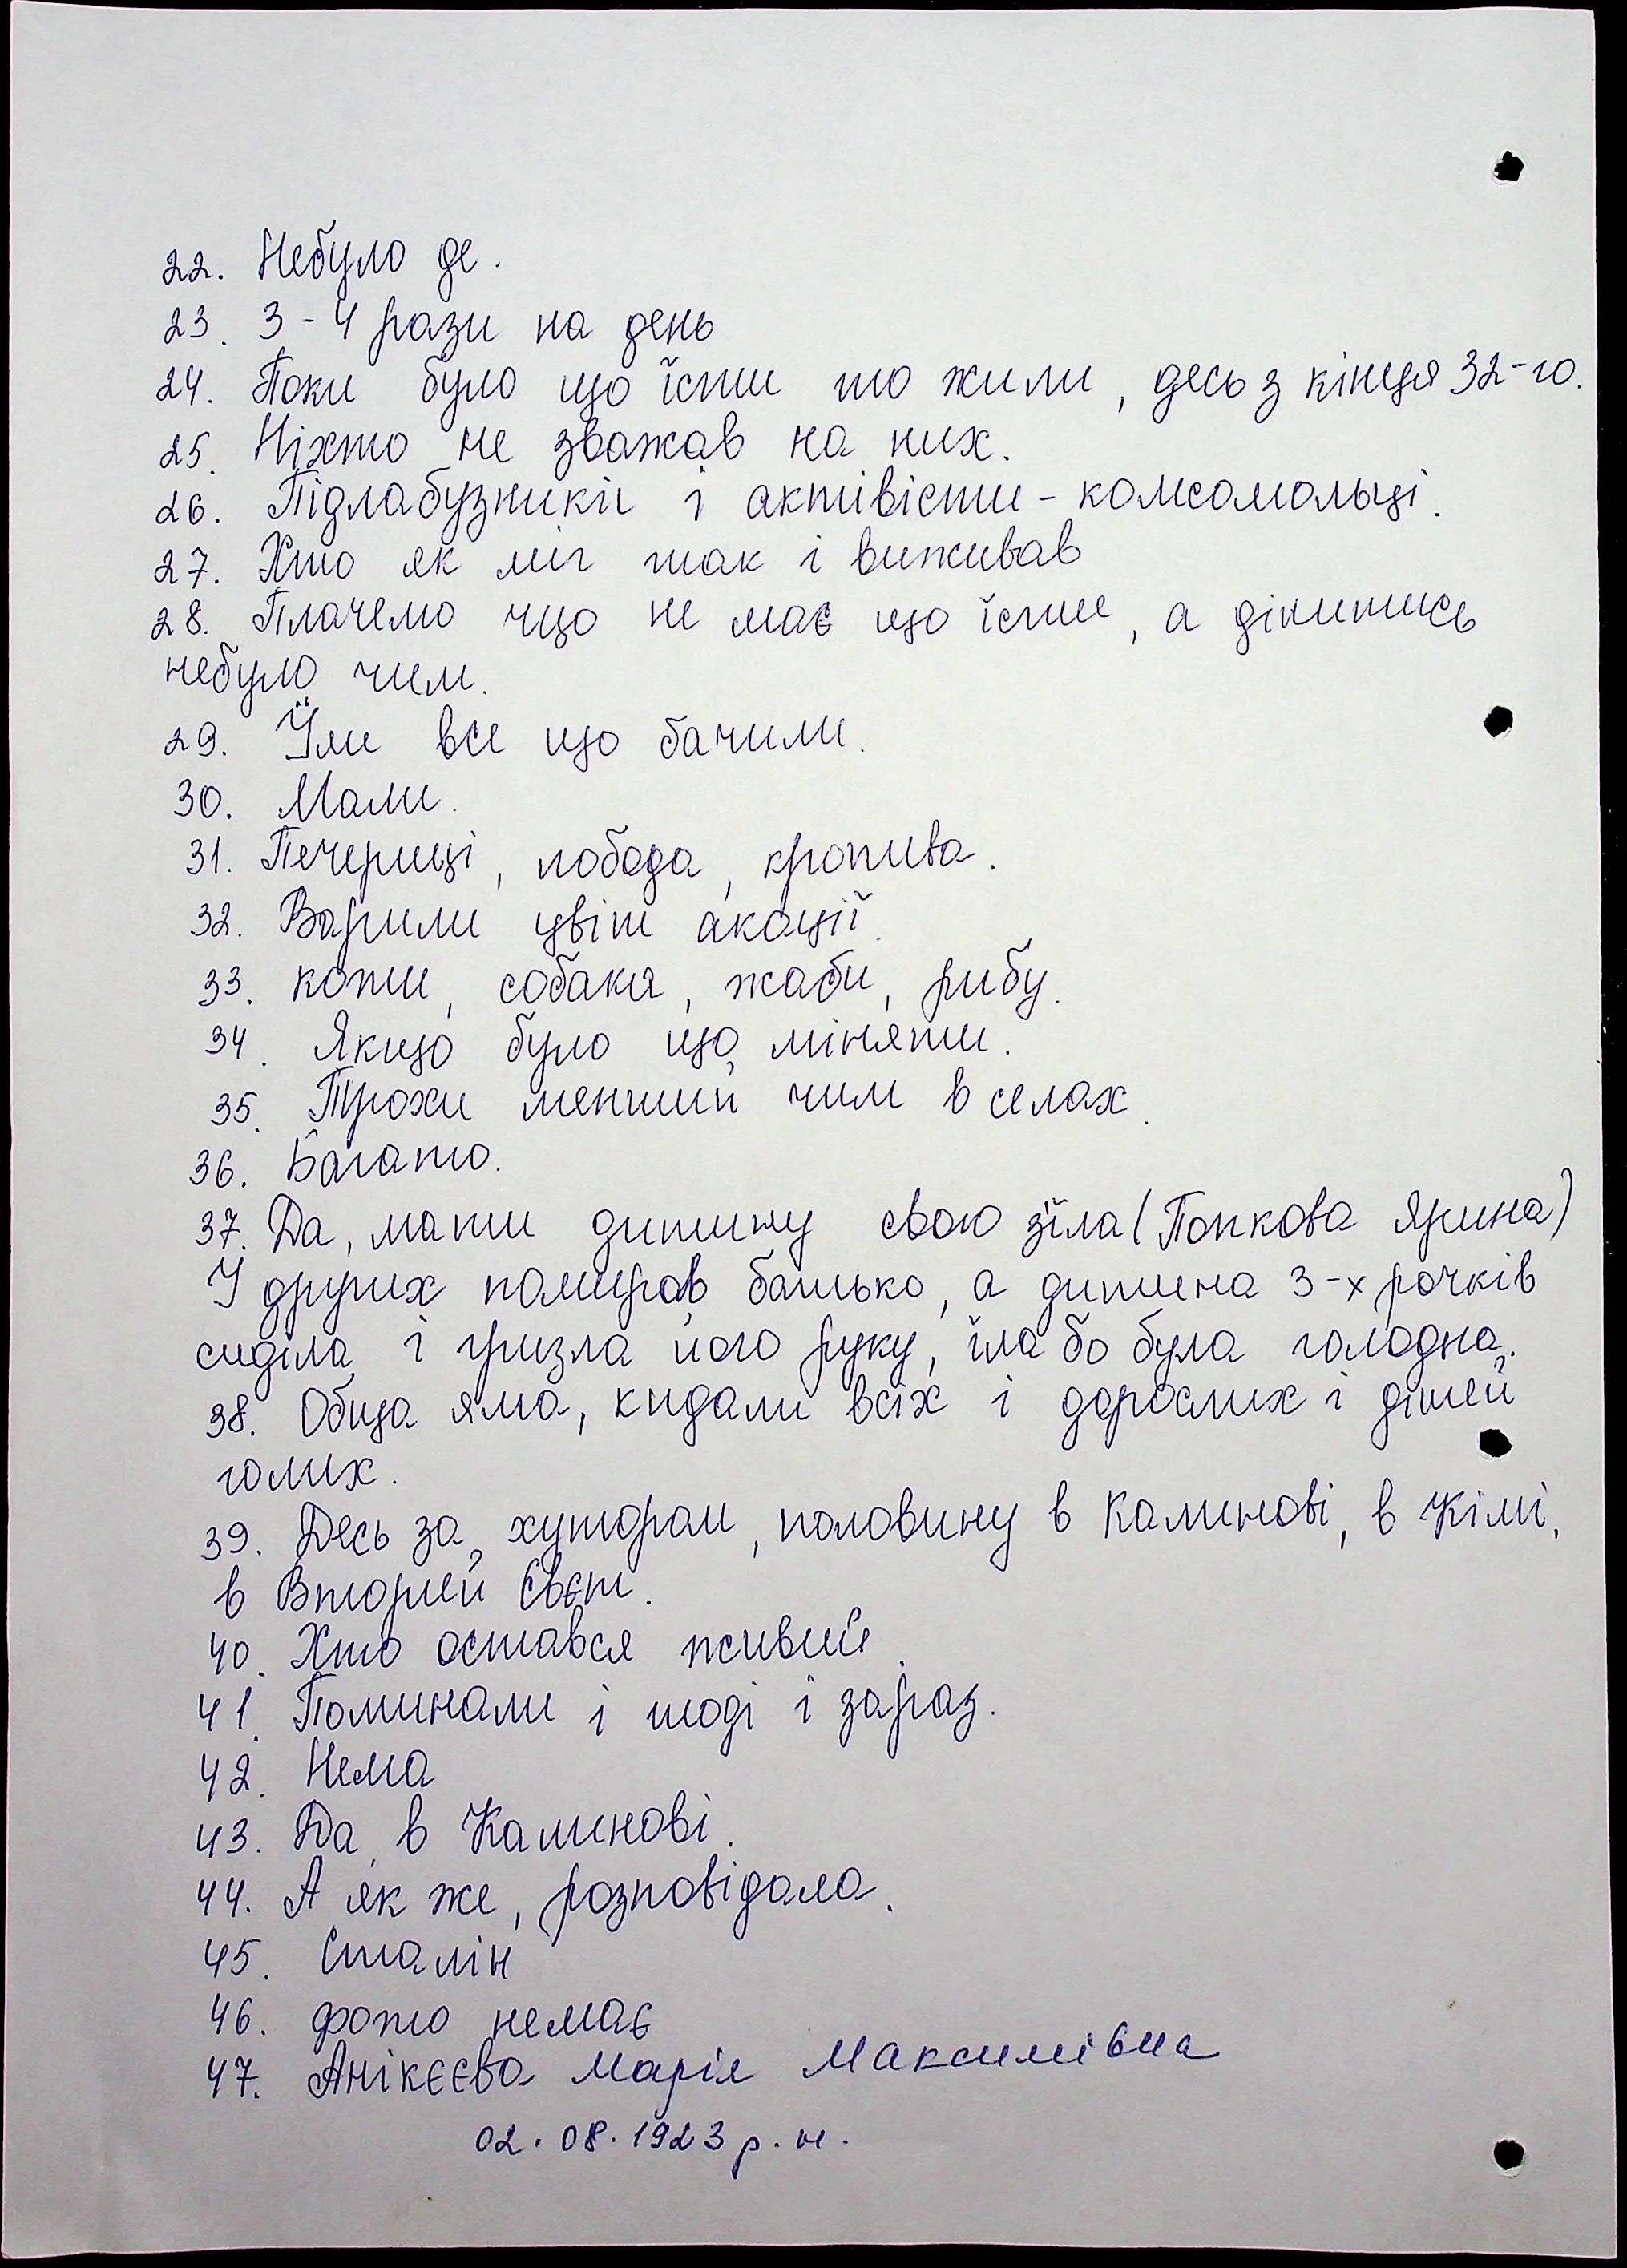 22. Небуло де.
23. 3-4 рази на день
24. Поки було що їсти то жили, десь з кінця 32-го.
25. Ніхто не зважав на них.
26. Підлабузники іактівісти-комсомольці.
27. Хто як міг так і виживав
28. Плачемо що не має що їсти, а ділитись
небуло чим.
29. Їли все що бачили.
30. Мали.
31. Печериці, лобода, кропива.
32. Варили цвіт акації.
33. коти, собаки, жаби, рибу.
34. Якщо було що міняти.
35. Трохи менший чим в селах.
36. Багато.
37. Да, мати дитину свою зїла (Попкова Ярина)
У других помирав батько, а дитина 3-х рочків
сиділа і гризла його руку, їла бо була голодна.
38. Обща яма, кидали всіх і дорослих і дітей
голих.
39. Десь за хутором, половину в Калинові, в Кімі,
в Вторий Свєт.
40. Хто остався живий.
41. Поминали і тоді і зараз.
42. Нема
43. Да, в Калинові.
44. А як же, розповідала.
45. Сталін
46. фото немає
47. Анікєєва Марія Максимівна
02.08.1923 р.н.